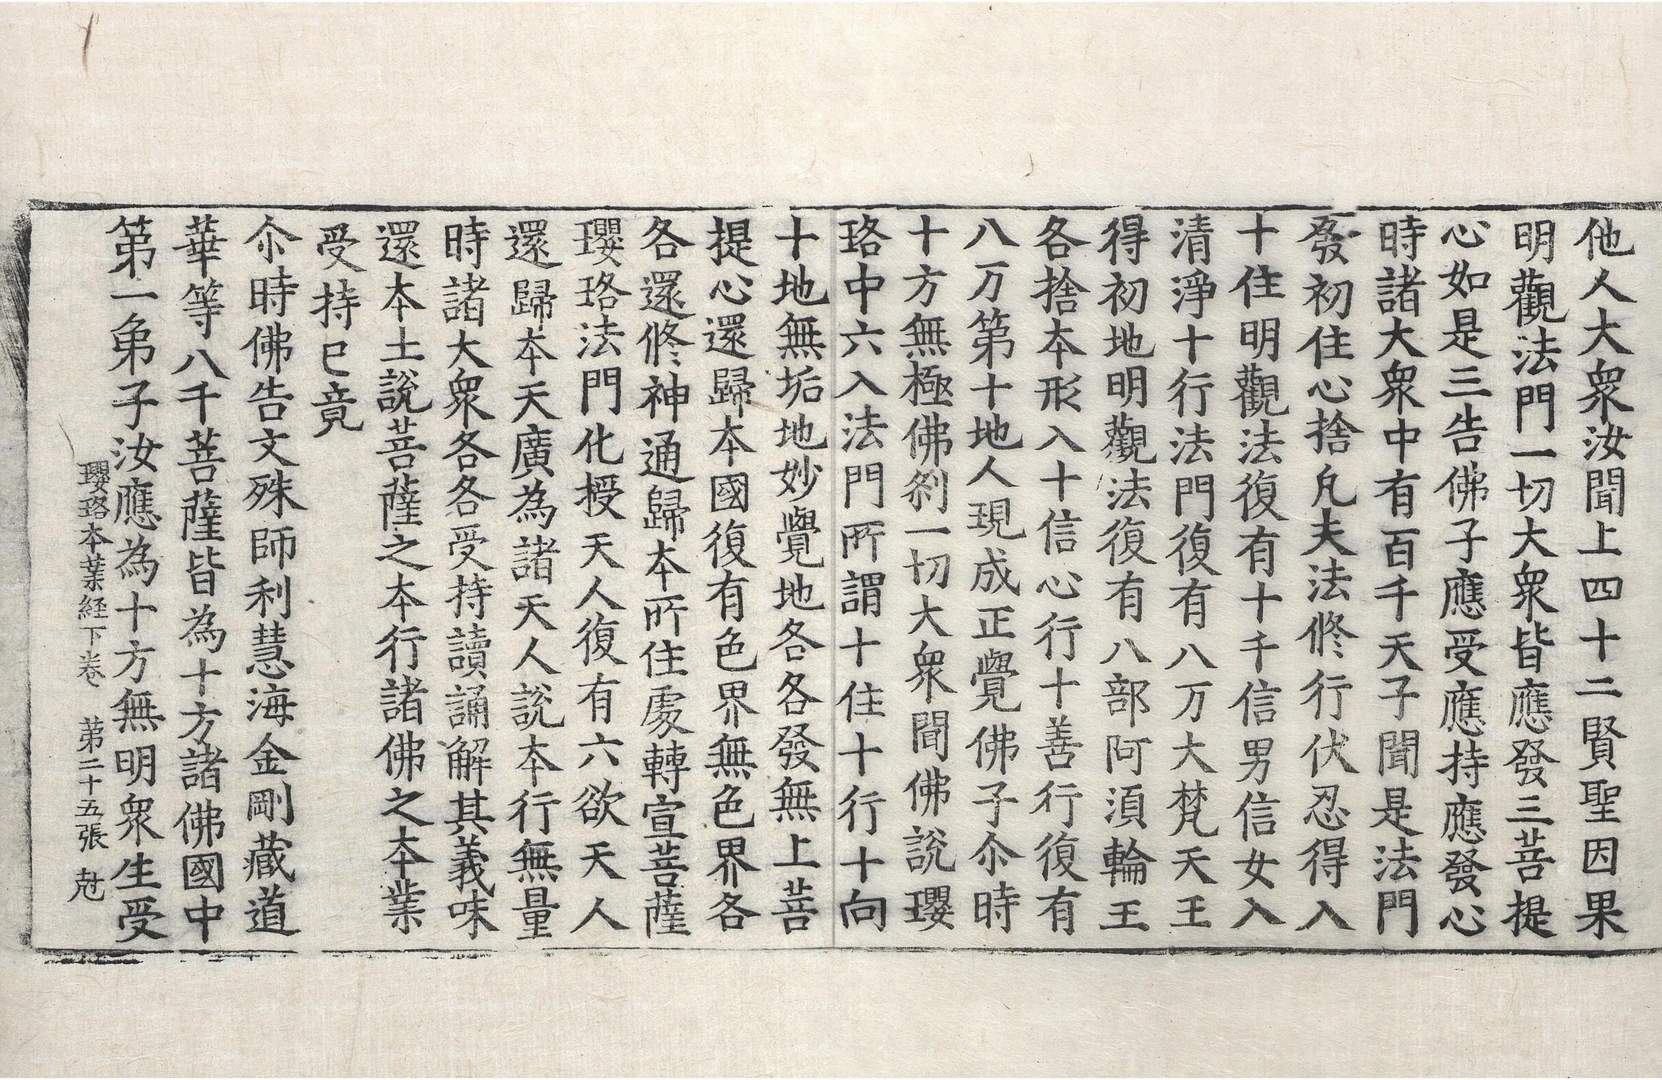 他人大衆汝聞上四十二賢聖因果
明觀法門一切大衆皆應發三菩提
心如是三告佛子應受應持應發心
時諸大衆中有百千天子聞是法門
發初住心捨凡夫法修行伏忍得入
十住明觀法復有十千信男信女入
清淨十行法門復有八万大梵天王
得初地明觀法復有八部阿湏輪王
各捨本形入十信心行十善行復有
八万第十地人現成正覺佛子尒時
十方無極佛刹一切大衆聞佛說瓔
珞中六入法門所謂十住十行十向
十地無垢地妙覺地各各發無上菩
提心還歸本國復有色界無色界各
各還修神通歸本所住處轉宣菩薩
瓔珞法門化授天人復有六欲天人
還歸本天廣為諸天人說本行無量
時諸大衆各各受持讀誦解其義味
還本土說菩薩之本行諸佛之本業
受持已竟
尒時佛告文殊師利慧海金剛藏道
華等八千菩薩皆為十方諸佛國中
第一弟子汝應為十方無明衆生受
瓔珞本業経下卷 第二十五張 尅